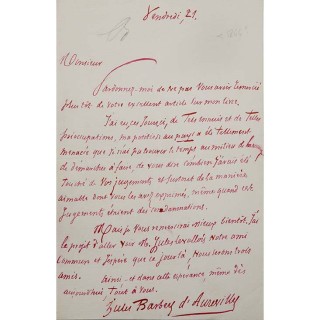 Vendredi, 21.
Monsieur
Pardonnez-moi de ne pas vous avoir remercié
plus tôt de votre excellent article sur mon livre.
J'ai eu ces jours-ci, de très ennuis et de telles
préoccupations, ma protégée au pays a été tellement
menacée que je n'ai pas trouvé le temps au milieu de
de démarches à faire, de vous dire combien j'avais été
touché de vos jugements et surtout de la manière
aimable dont vous les avez exprimés, même quand ces
jugements étaient des condamnations.
Mais je vous remercierai mieux bientôt. J'ai
le projet d'aller voir M. Jules Levallois notre ami
commun et j'espère que ce jour là, nous serons trois
amis.
Ainsi - et dans cette espérance même dès
aujourd'hui, tout à vous.
Jules Barbey d'Aurevilly